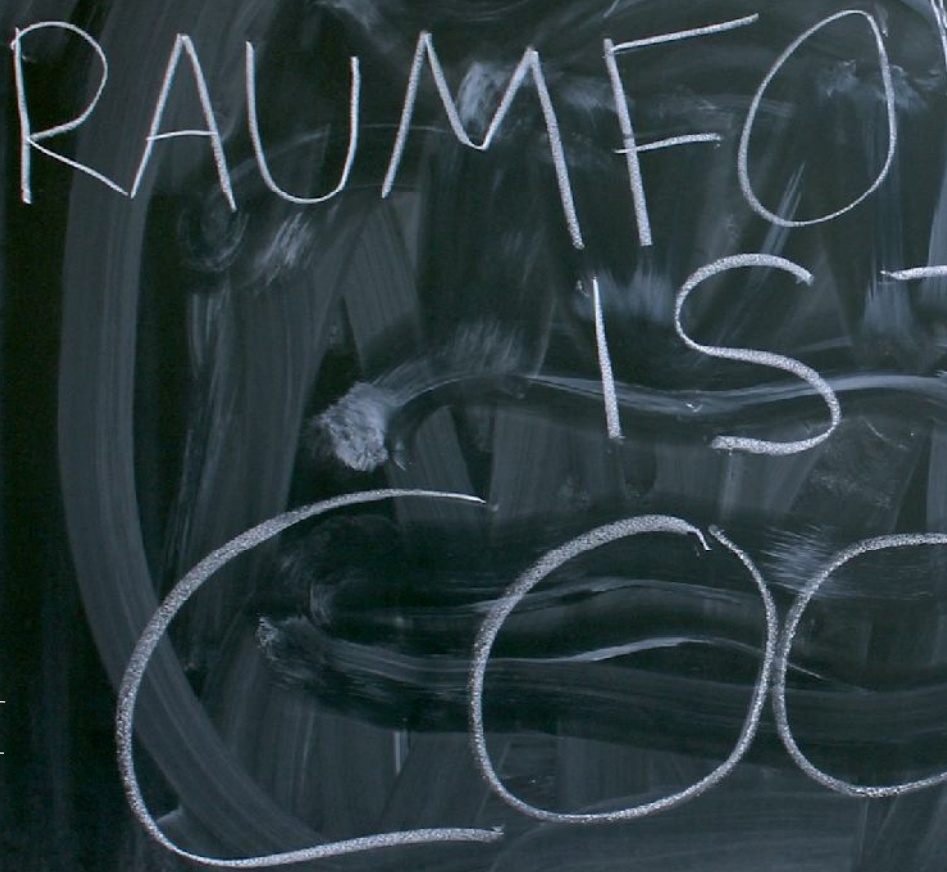 RAUMFO
IS
COO